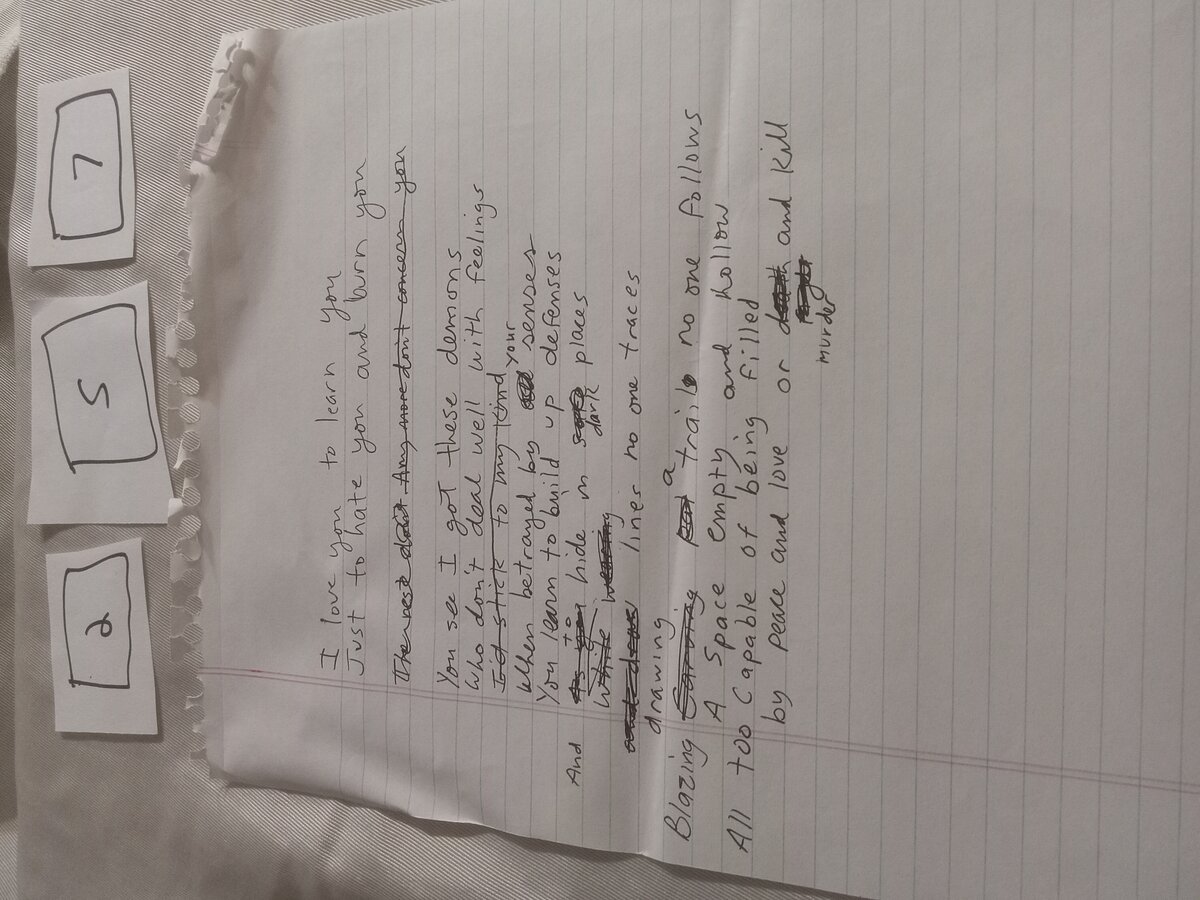 2 5 7
I love you to learn you
Just to hate you and burn you
The rest don't Any more don't concern you
You see I got these demons
Who don't deal well with feelings
I'd stick to my kind
your
When betrayed by senses
You learn to build up defenses
And to hide in places
dark
While wearing
lines no one traces
drawing
a
Blazing Carving trail no one follows
A space empty and hollow
All too capable of being filled
by peace and love or death and kill
murder